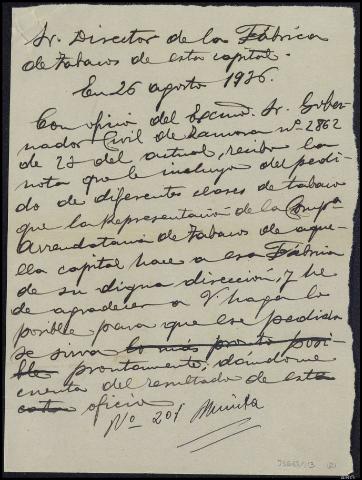 Sr. Director de la Fábrica
de tabacos de esta capital.
En 26 agosto 1936.
Con oficio del Excmo. Sr. Gober-
nador Civil de Zamora nº 2862
de 23 del actual, recibo la
nota que le incluyo del pedi-
do de diferentes clases de tabaco
que la Representación de la Compª
Arrendataria de tabacos de aque-
lla capital hace a esa Fábrica
de su digna dirección, y he
de agradecer a V. haga lo
posible para que ese pedido
se sirva lo más pronto posi-
ble prontamente, dándome
cuenta del resultado de este
oficio
Nº 201